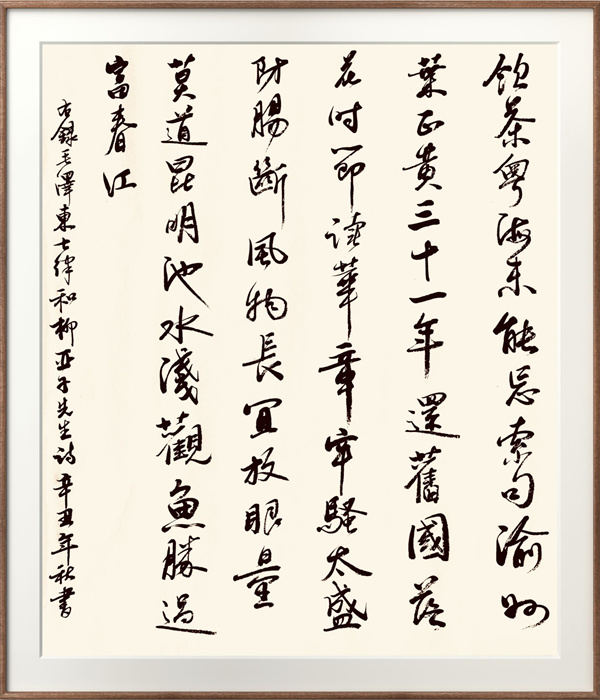 飲茶粵海未能忘索句渝州
葉正黃三十一年還舊國落
花时節读華章牢騷太盛
防腸斷風物長宜放眼量
莫道昆明池水淺觀魚勝過
富春江
右錄毛澤東七律和柳亞子先生诗辛丑年秋書